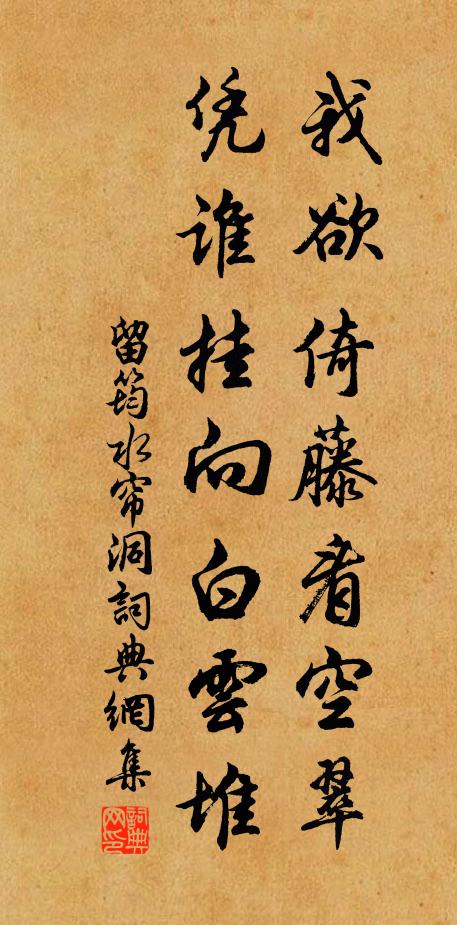 我欲倚藤看空翠
凭谁挂向白雲堆
留筠水帘洞詞典網集
詞典网印